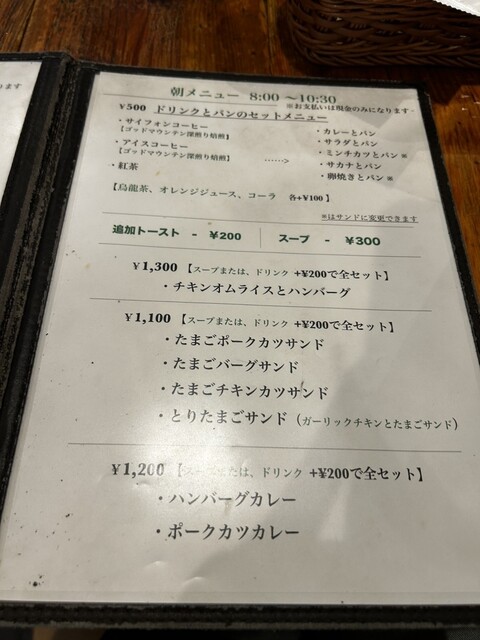 朝メニュー 8:00 ～10:30
※お支払いは現金のみになります
¥500 ドリンクとパンのセットメニュー
・サイフォンコーヒー
【ゴッドマウンテン深煎り焙煎】
・アイスコーヒー
【ゴッドマウンテン深煎り焙煎】
・紅茶
------>
・カレーとパン
・サラダとパン
・ミンチカツとパン ※
・サカナとパン
・卵焼きとパン ※
【烏龍茶、オレンジジュース、コーラ 各+¥100】
※はサンドに変更できます
追加トースト - ¥200 スープ - ¥300
¥1,300 【スープまたは、ドリンク +¥200で全セット】
・チキンオムライスとハンバーグ
¥1,100 【スープまたは、ドリンク +¥200で全セット】
・たまごポークカツサンド
・たまごバーグサンド
・たまごチキンカツサンド
・とりたまごサンド（ガーリックチキンとたまごサンド）
¥1,200 【スープまたは、ドリンク +¥200で全セット】
・ハンバーグカレー
・ポークカツカレー